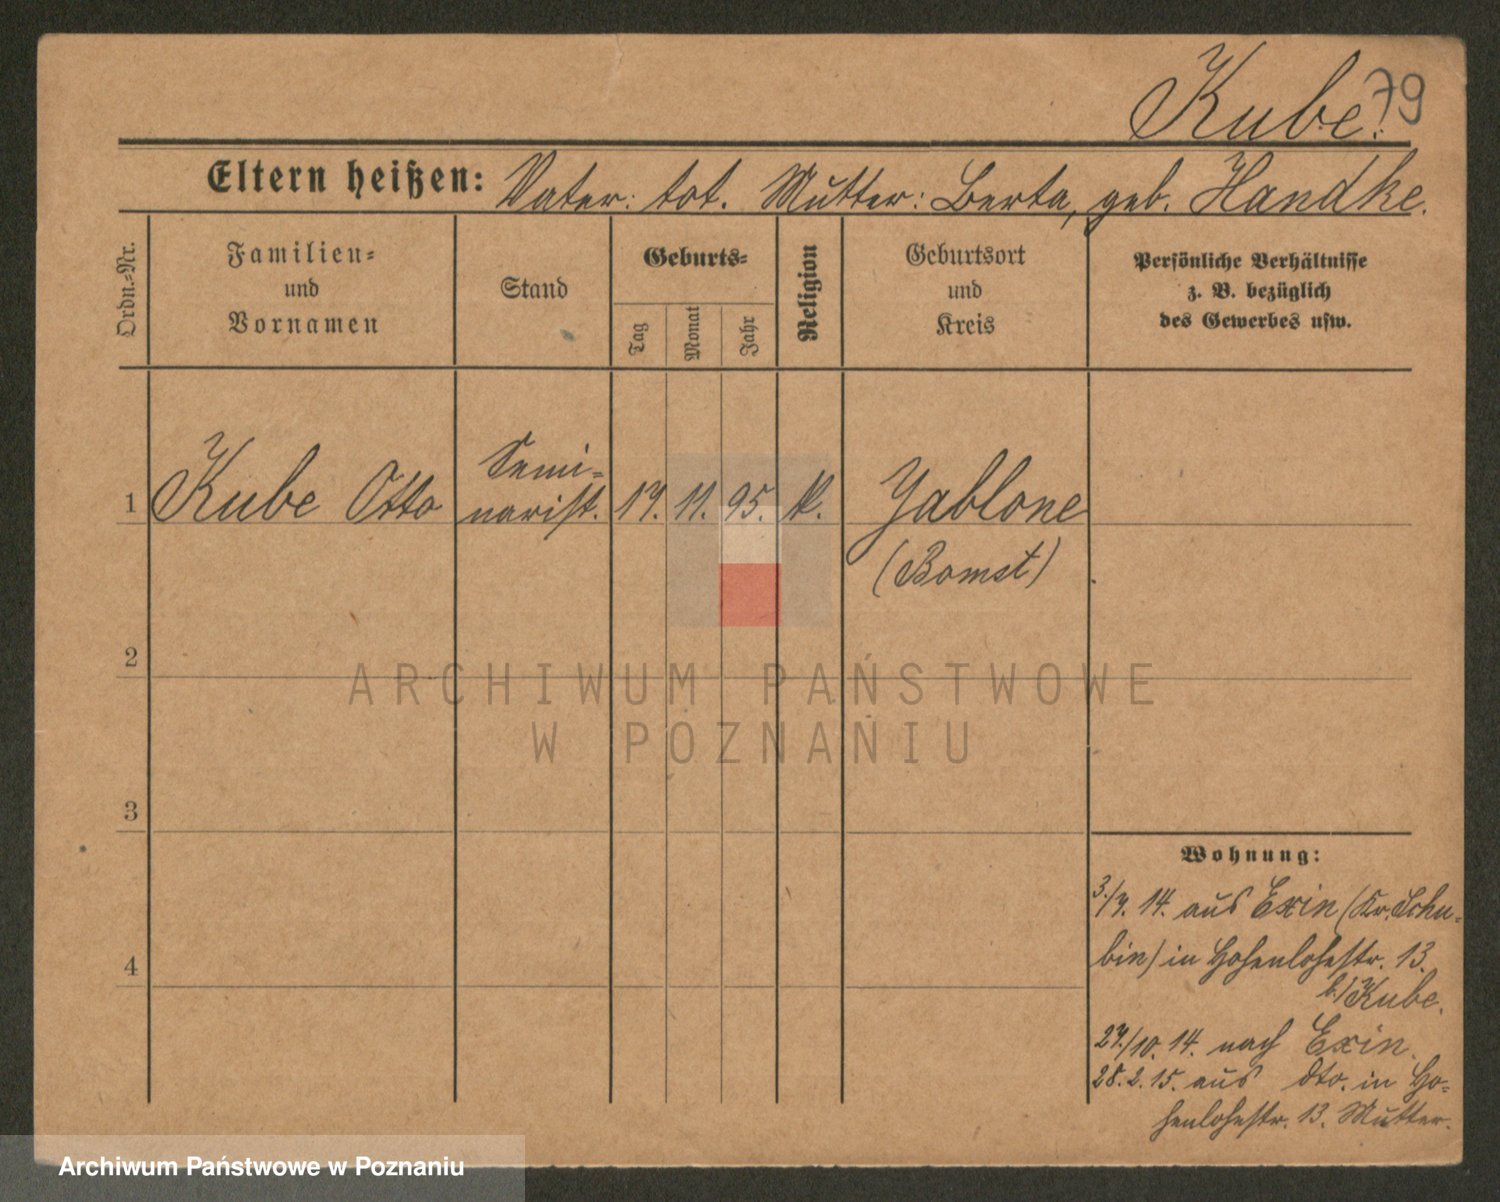 Kube. 79
Eltern heißen: Vater: tot. Mutter: Berta, geb. Handke.
Ordn.-Nr.
Familien-
und
Vornamen
Stand
Geburts-
Tag
Monat
Jahr
Religion
Geburtsort
und
Kreis
Persönliche Verhältnisse
z. B. bezüglich
des Gewerbes usw.
Semi-
1 Kube Otto narist. 17. 11. 95. k. Jablone
(Bomst)
2
ARCHIWUM PAŃSTWOWE
W POZNANIU
3
Wohnung:
3./7. 14. aus Exin (Kr. Schu-
4 bin) in Hohenlohestr. 13.
b/ Kube.
27./10. 14. nach Exin.
28. 2. 15. aus dto. in Ho-
henlohestr. 13. Mutter.
Archiwum Państwowe w Poznaniu